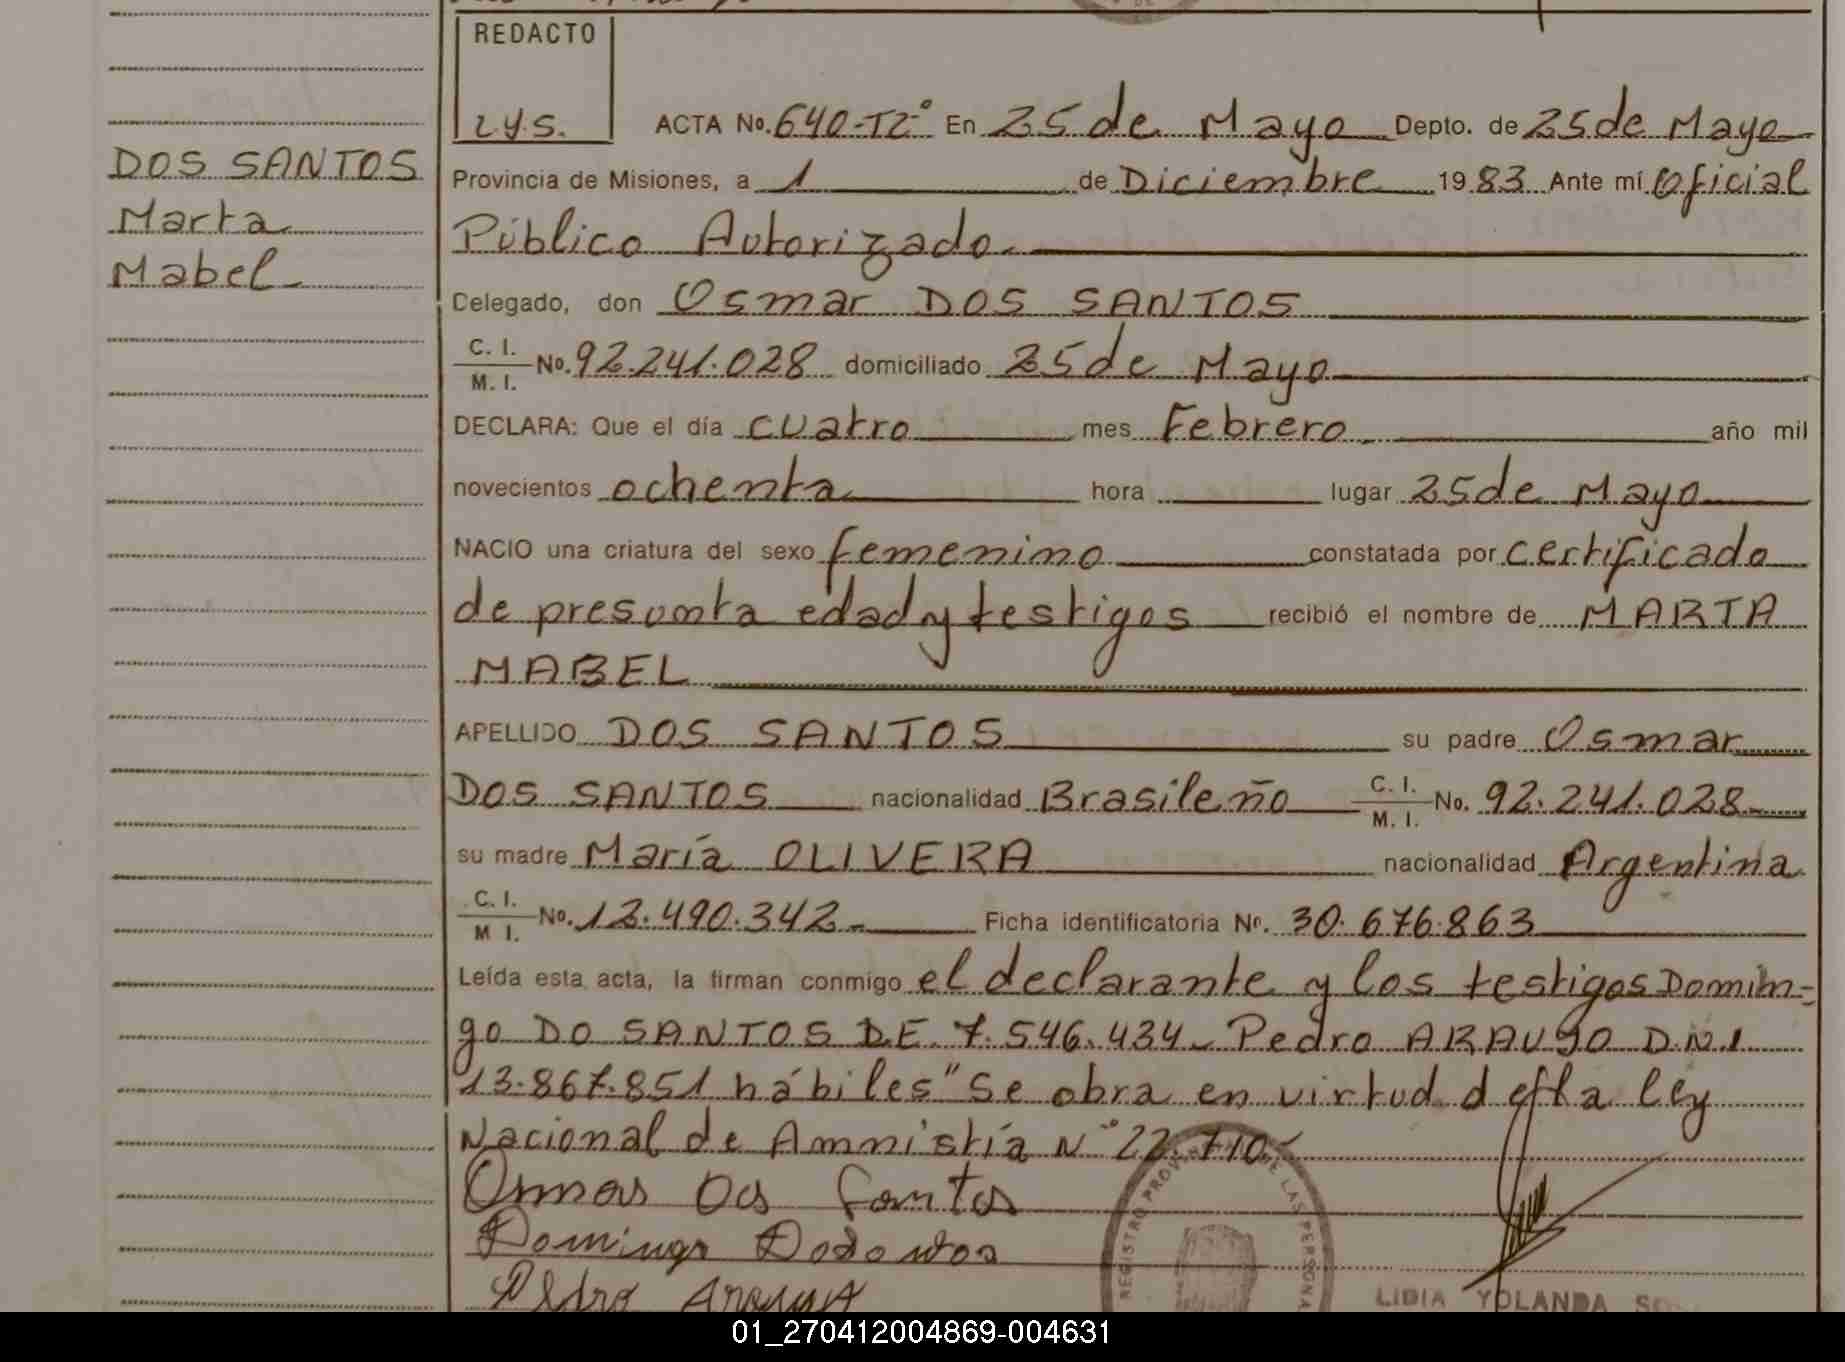 REDACTO
L.Y.S.
ACTA No. 640-T2° En 25 de Mayo Depto. de 25 de Mayo
DOS SANTOS
Marta
Mabel
Provincia de Misiones, a 1 de Diciembre 1983 Ante mí Oficial
Público Autorizado
Celegado, don Osmar DOS SANTOS
C. I.
M. I. No. 92.241.028 domiciliado 25 de Mayo
DECLARA: Que el día cuatro mes Febrero año mil
novecientos ochenta hora lugar 25 de Mayo
NACIO una criatura del sexo femenino constatada por certificado
de presunta edad y testigos recibió el nombre de MARTA
MABEL
APELLIDO DOS SANTOS su padre Osmar
DOS SANTOS nacionalidad Brasileño C. I. M. I. No. 92.241.028
su madre María OLIVERA nacionalidad Argentina
C. I.
M I. No. 12.490.342 Ficha identificatoria Nº. 30.676.863
Leída esta acta, la firman conmigo el declarante y los testigos Domin=
go DO SANTOS D.E. 7.546.434 Pedro ARAUJO D.N.I.
13.867.851 hábiles "Se obra en virtud de la ley
Nacional de Amnistía N° 22.710
Osmar Dos Santos
Domingo
Pedro
REGISTRO PROVINCIAL DE LAS PERSONA
LIDIA YOLANDA
01_270412004869-004631